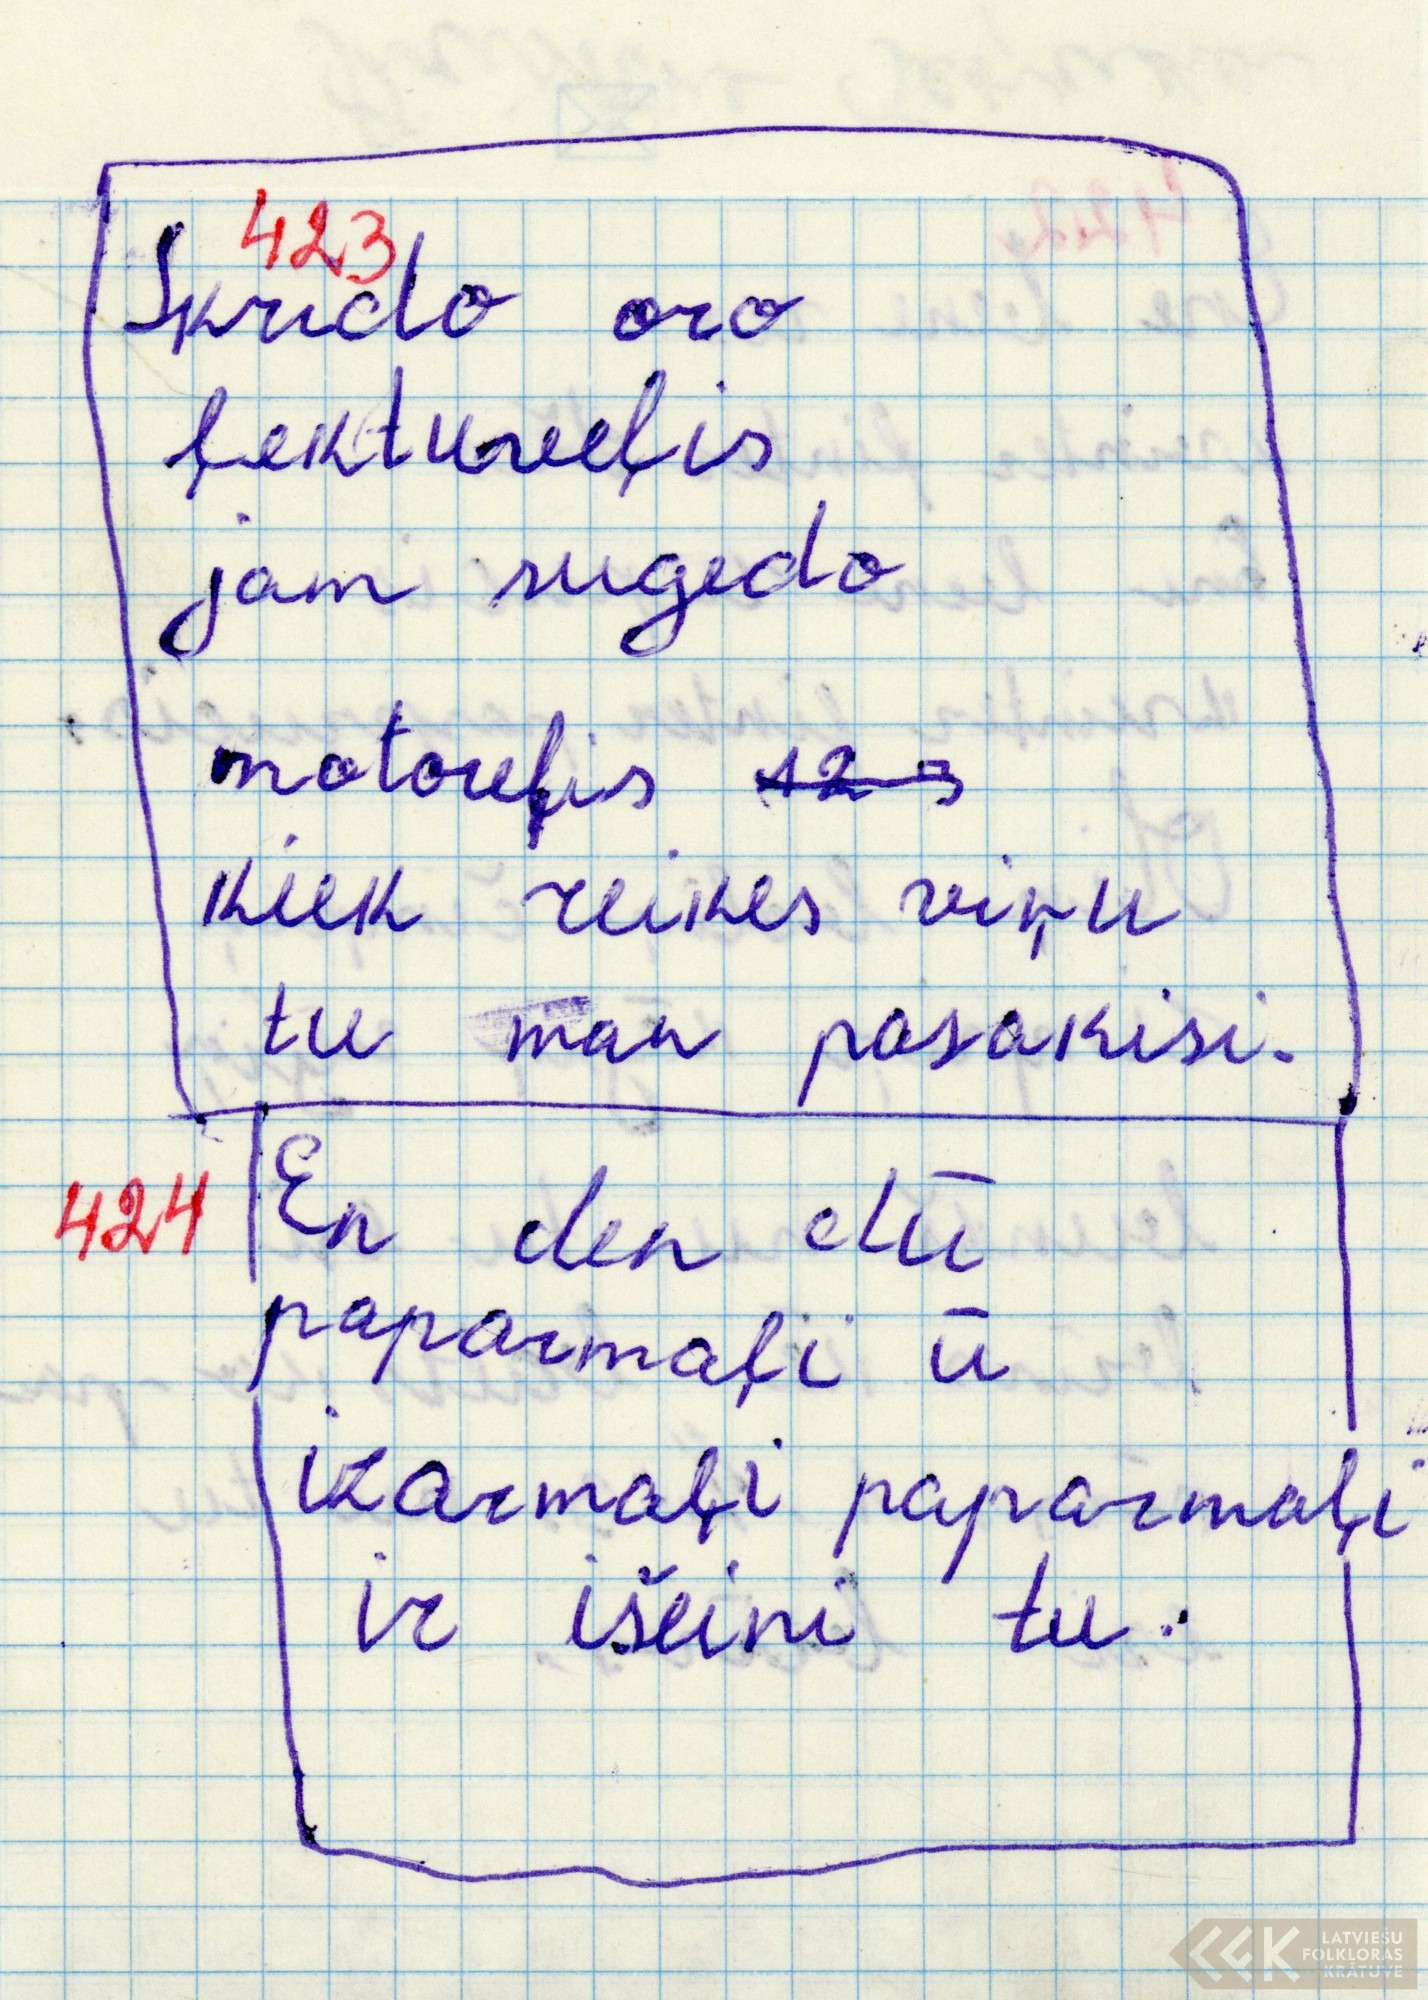 423
Skrido oro
ļektureļis
jam sugedo
motoreļis 12 3
kiek reikes viņu
tu man pasakisi.
424
En den dū
paparmaļi ū
izarmaļi paparmaļi
ir išeini tu.
LATVIEŠU
FOLKLORAS
KRĀTUVE